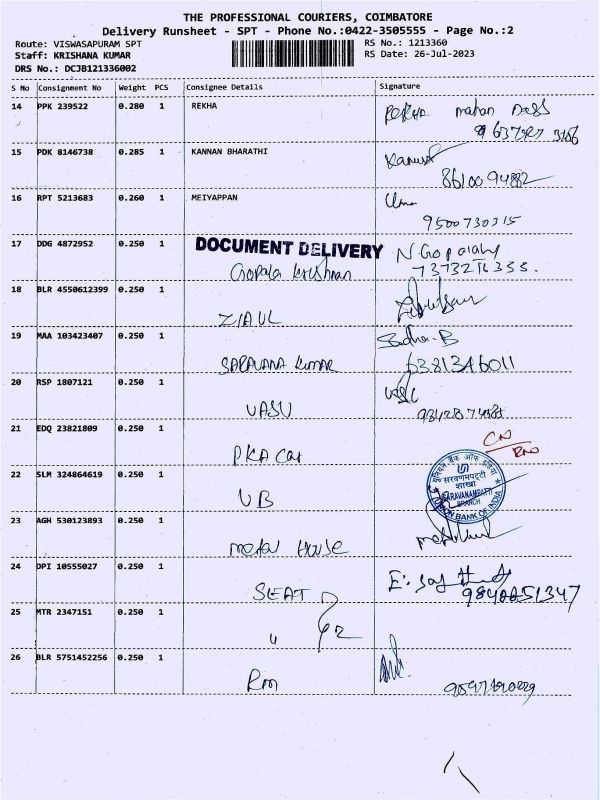 THE PROFESSIONAL COURIERS, COIMBATORE
Delivery Runsheet - SPT - Phone No.:0422-3505555 - Page No.:2
Route: VISWASAPURAM SPT
Staff: KRISHANA KUMAR
DRS No.: DCJB121336002
RS No.: 1213360
RS Date: 26-Jul-2023
S No Consignment No Weight PCS Consignee Details Signature
14 PPK 239522 0.280 1 REKHA
15 PDK 8146738 0.285 1 KANNAN BHARATHI
8610094882
16 RPT 5213683 0.260 1 MEIYAPPAN Uma
9500730315
17 DDG 4872952 0.250 1 DOCUMENT DELIVERY
Gopala krishnan
18 BLR 4550612399 0.250 1
ZIAUL
19 MAA 103423407 0.250 1 Sadha.B
SARAVANA KUMAR 6381346011
20 RSP 1807121 0.250 1
VASU
21 EDQ 23821809 0.250 1
22 SLM 324864619 0.250 1
UB
यूनियन बैंक ऑफ इंडिया
सरवणमपट्टी
शाखा
SARAVANAMPATTI
BRANCH
UNION BANK OF INDIA
23 AGH 530123893 0.250 1
HOUSE
24 DPI 10555027 0.250 1
SEAT
25 MTR 2347151 0.250 1
"
26 BLR 5751452256 0.250 1
RM